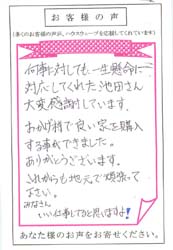 お客様の声
(多くのお客様の声が、ハウスウェーブを応援してくれています)
何事に対しても、一生懸命に
対応してくれた池田さん
大変感謝しています。
おかげ様で良い家を購入
する事ができました。
ありがとうございます。
これからも地元で頑張って
下さい。
みなさん
いい仕事してると思いますよ!
あなた様のお声をお寄せください。